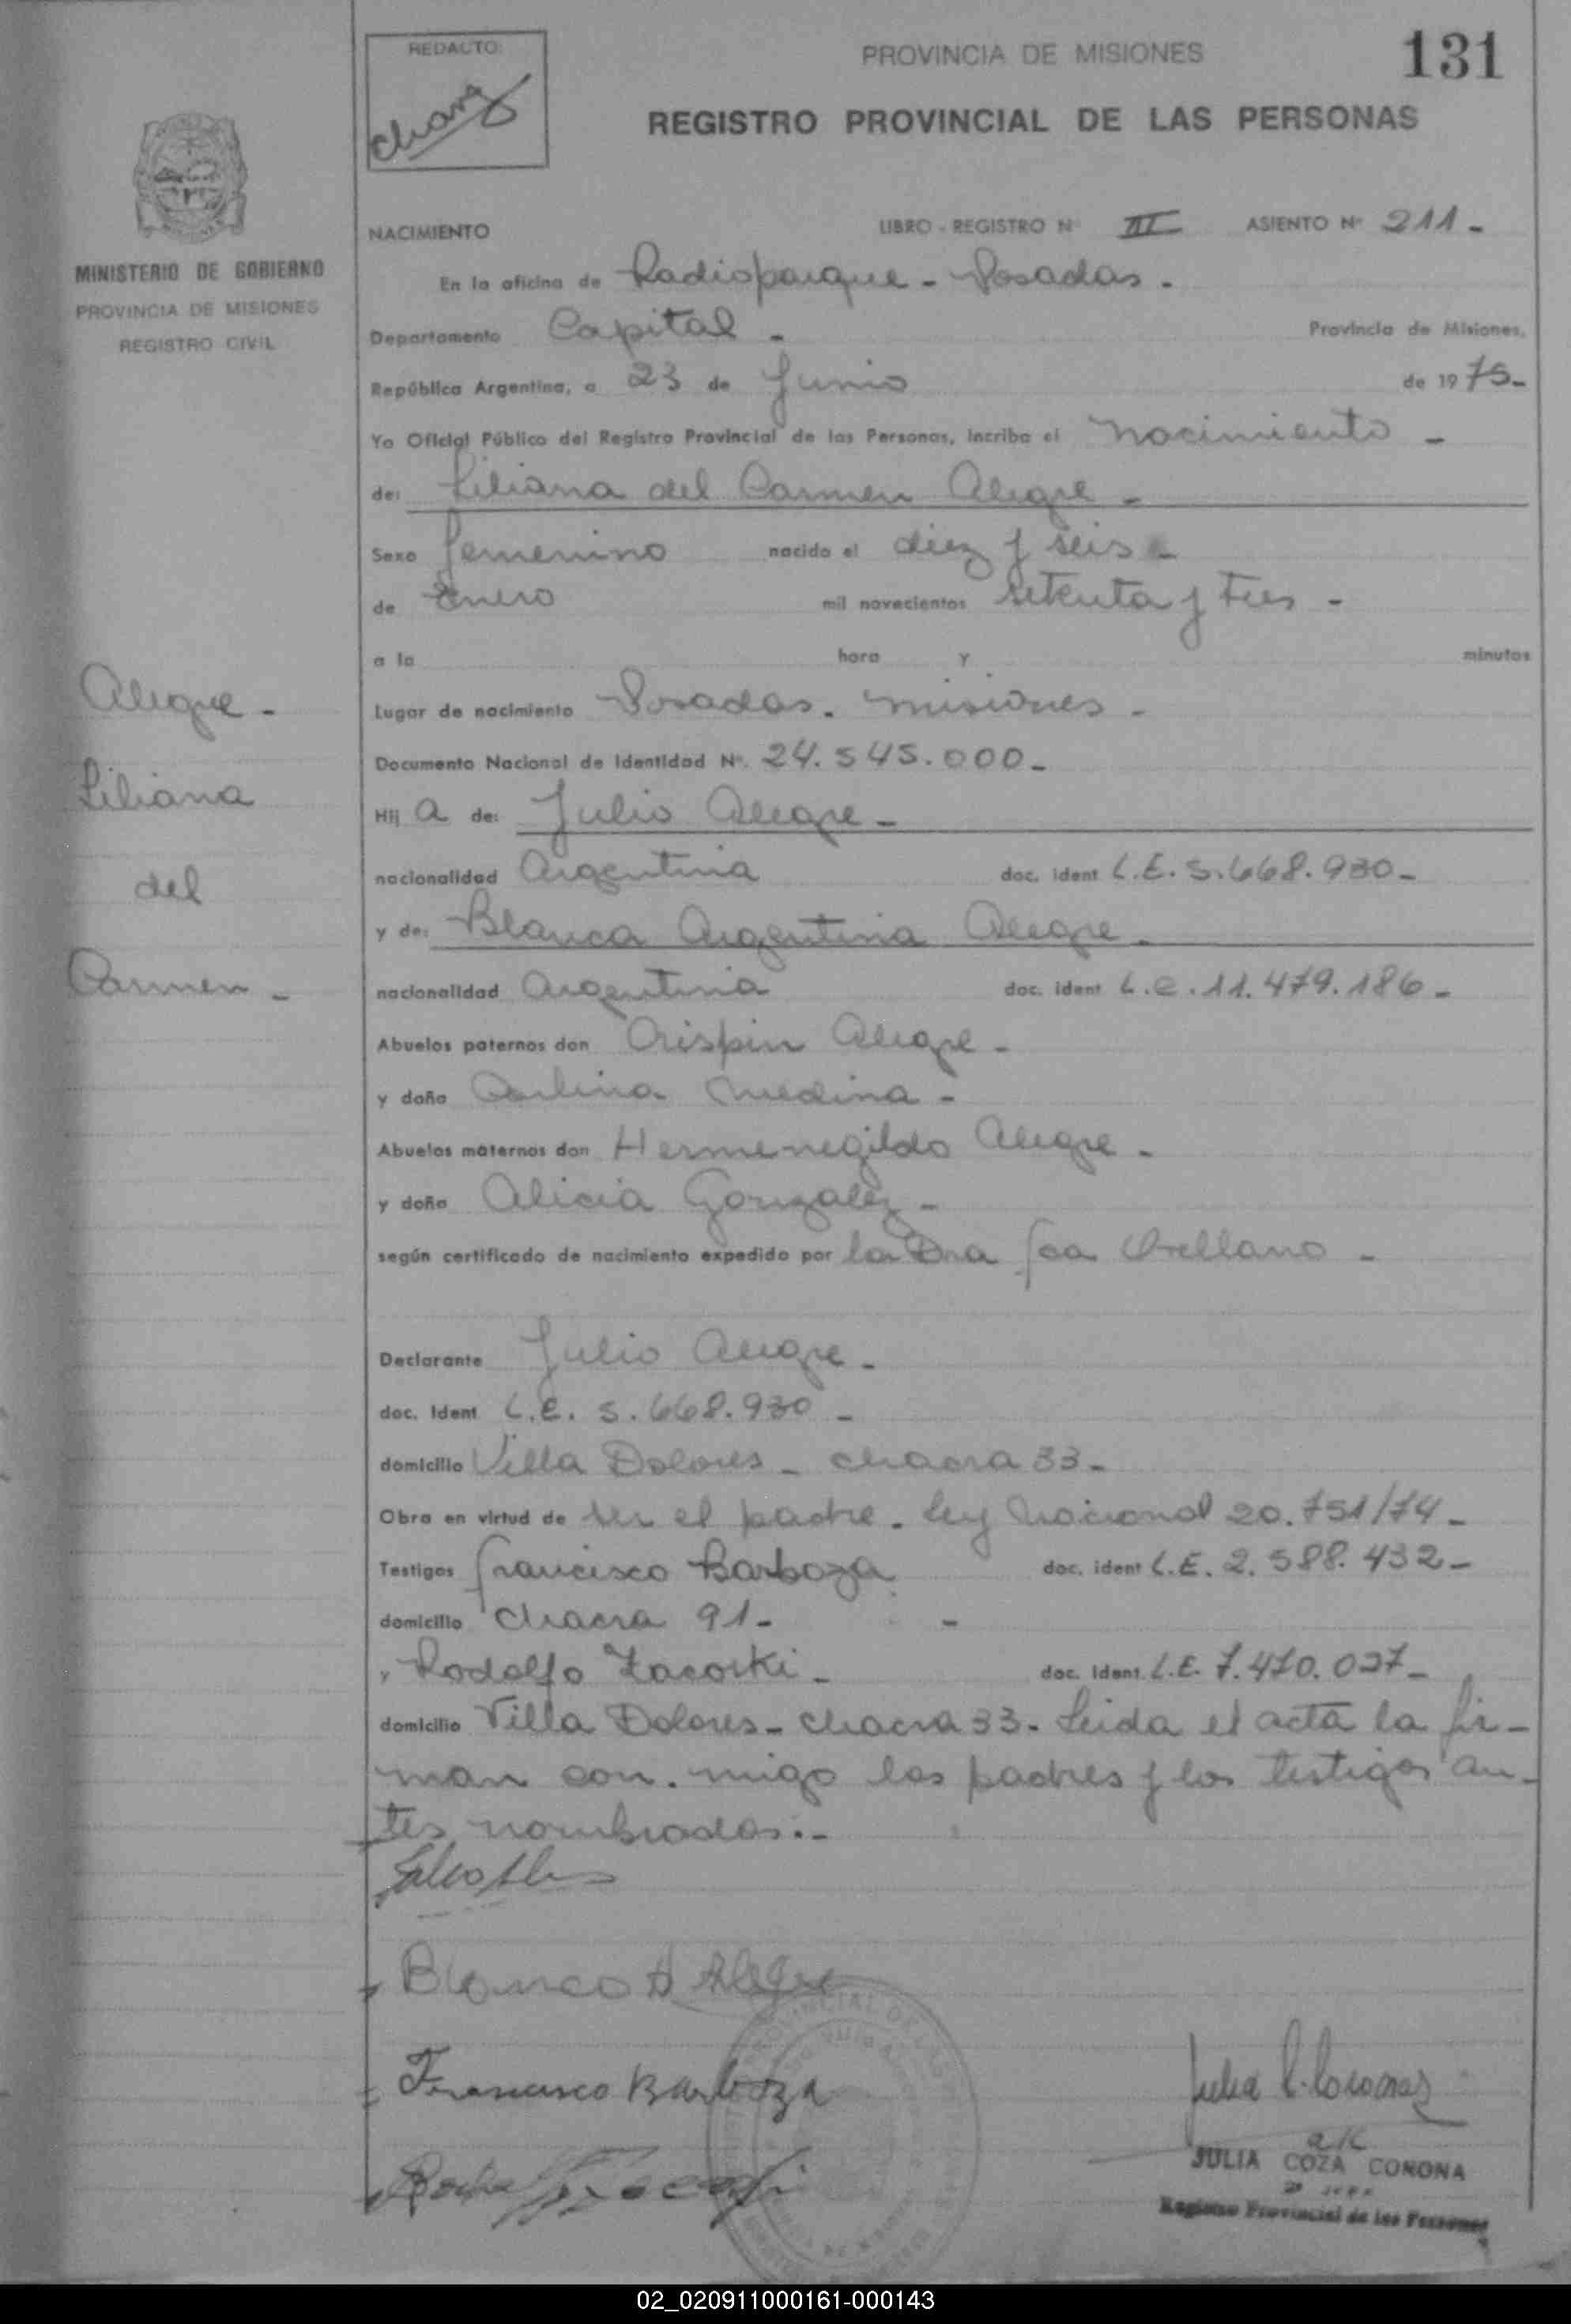 REDACTO:
PROVINCIA DE MISIONES
131
REGISTRO PROVINCIAL DE LAS PERSONAS
MINISTERIO DE GOBIERNO
PROVINCIA DE MISIONES
REGISTRO CIVIL
NACIMIENTO LIBRO - REGISTRO Nº III ASIENTO Nº 211 -
En la oficina de Radioparque - Posadas -
Departamento Capital - Provincia de Misiones,
República Argentina, a 23 de Junio de 1975-
Yo Oficial Público del Registro Provincial de las Personas, incribo el nacimiento -
de: Liliana del Carmen Alegre -
Sexo femenino nacido el diez y seis -
de Enero mil novecientos setenta y tres -
a la hora y minutos
Alegre -
Liliana
del
Carmen -
Lugar de nacimiento Posadas - misiones -
Documento Nacional de Identidad Nº. 24.545.000 -
Hij a de: Julio Alegre -
nacionalidad Argentina doc. ident L.E. 5.668.930 -
y de: Blanca Argentina Alegre -
nacionalidad Argentina doc. ident L.C. 11.479.186 -
Abuelos paternos don Crispin Alegre -
y doña Medina -
Abuelos maternos don Hermenegildo Alegre -
y doña Alicia Gonzalez -
según certificado de nacimiento expedido por la Dra Orellano -
Declarante Julio Alegre -
doc. Ident L.E. 5.668.930 -
domicilio Villa Dolores - chacra 33 -
Obra en virtud de ser el padre - Ley Nacional 20.751/74 -
Testigos Francisco Barboza doc. ident L.E. 2.588.432 -
domicilio Chacra 91 - -
y Rodolfo Zacoski - doc. Ident. L.E. 7.470.027 -
domicilio Villa Dolores - chacra 33 - Leida el acta la fir-
man con. migo los padres y los testigos an-
tes nombrados.-
Blanca A Alegre
Francisco Barboza
JULIA COZA CORONA
Registro Provincial de las Personas
02_020911000161-000143